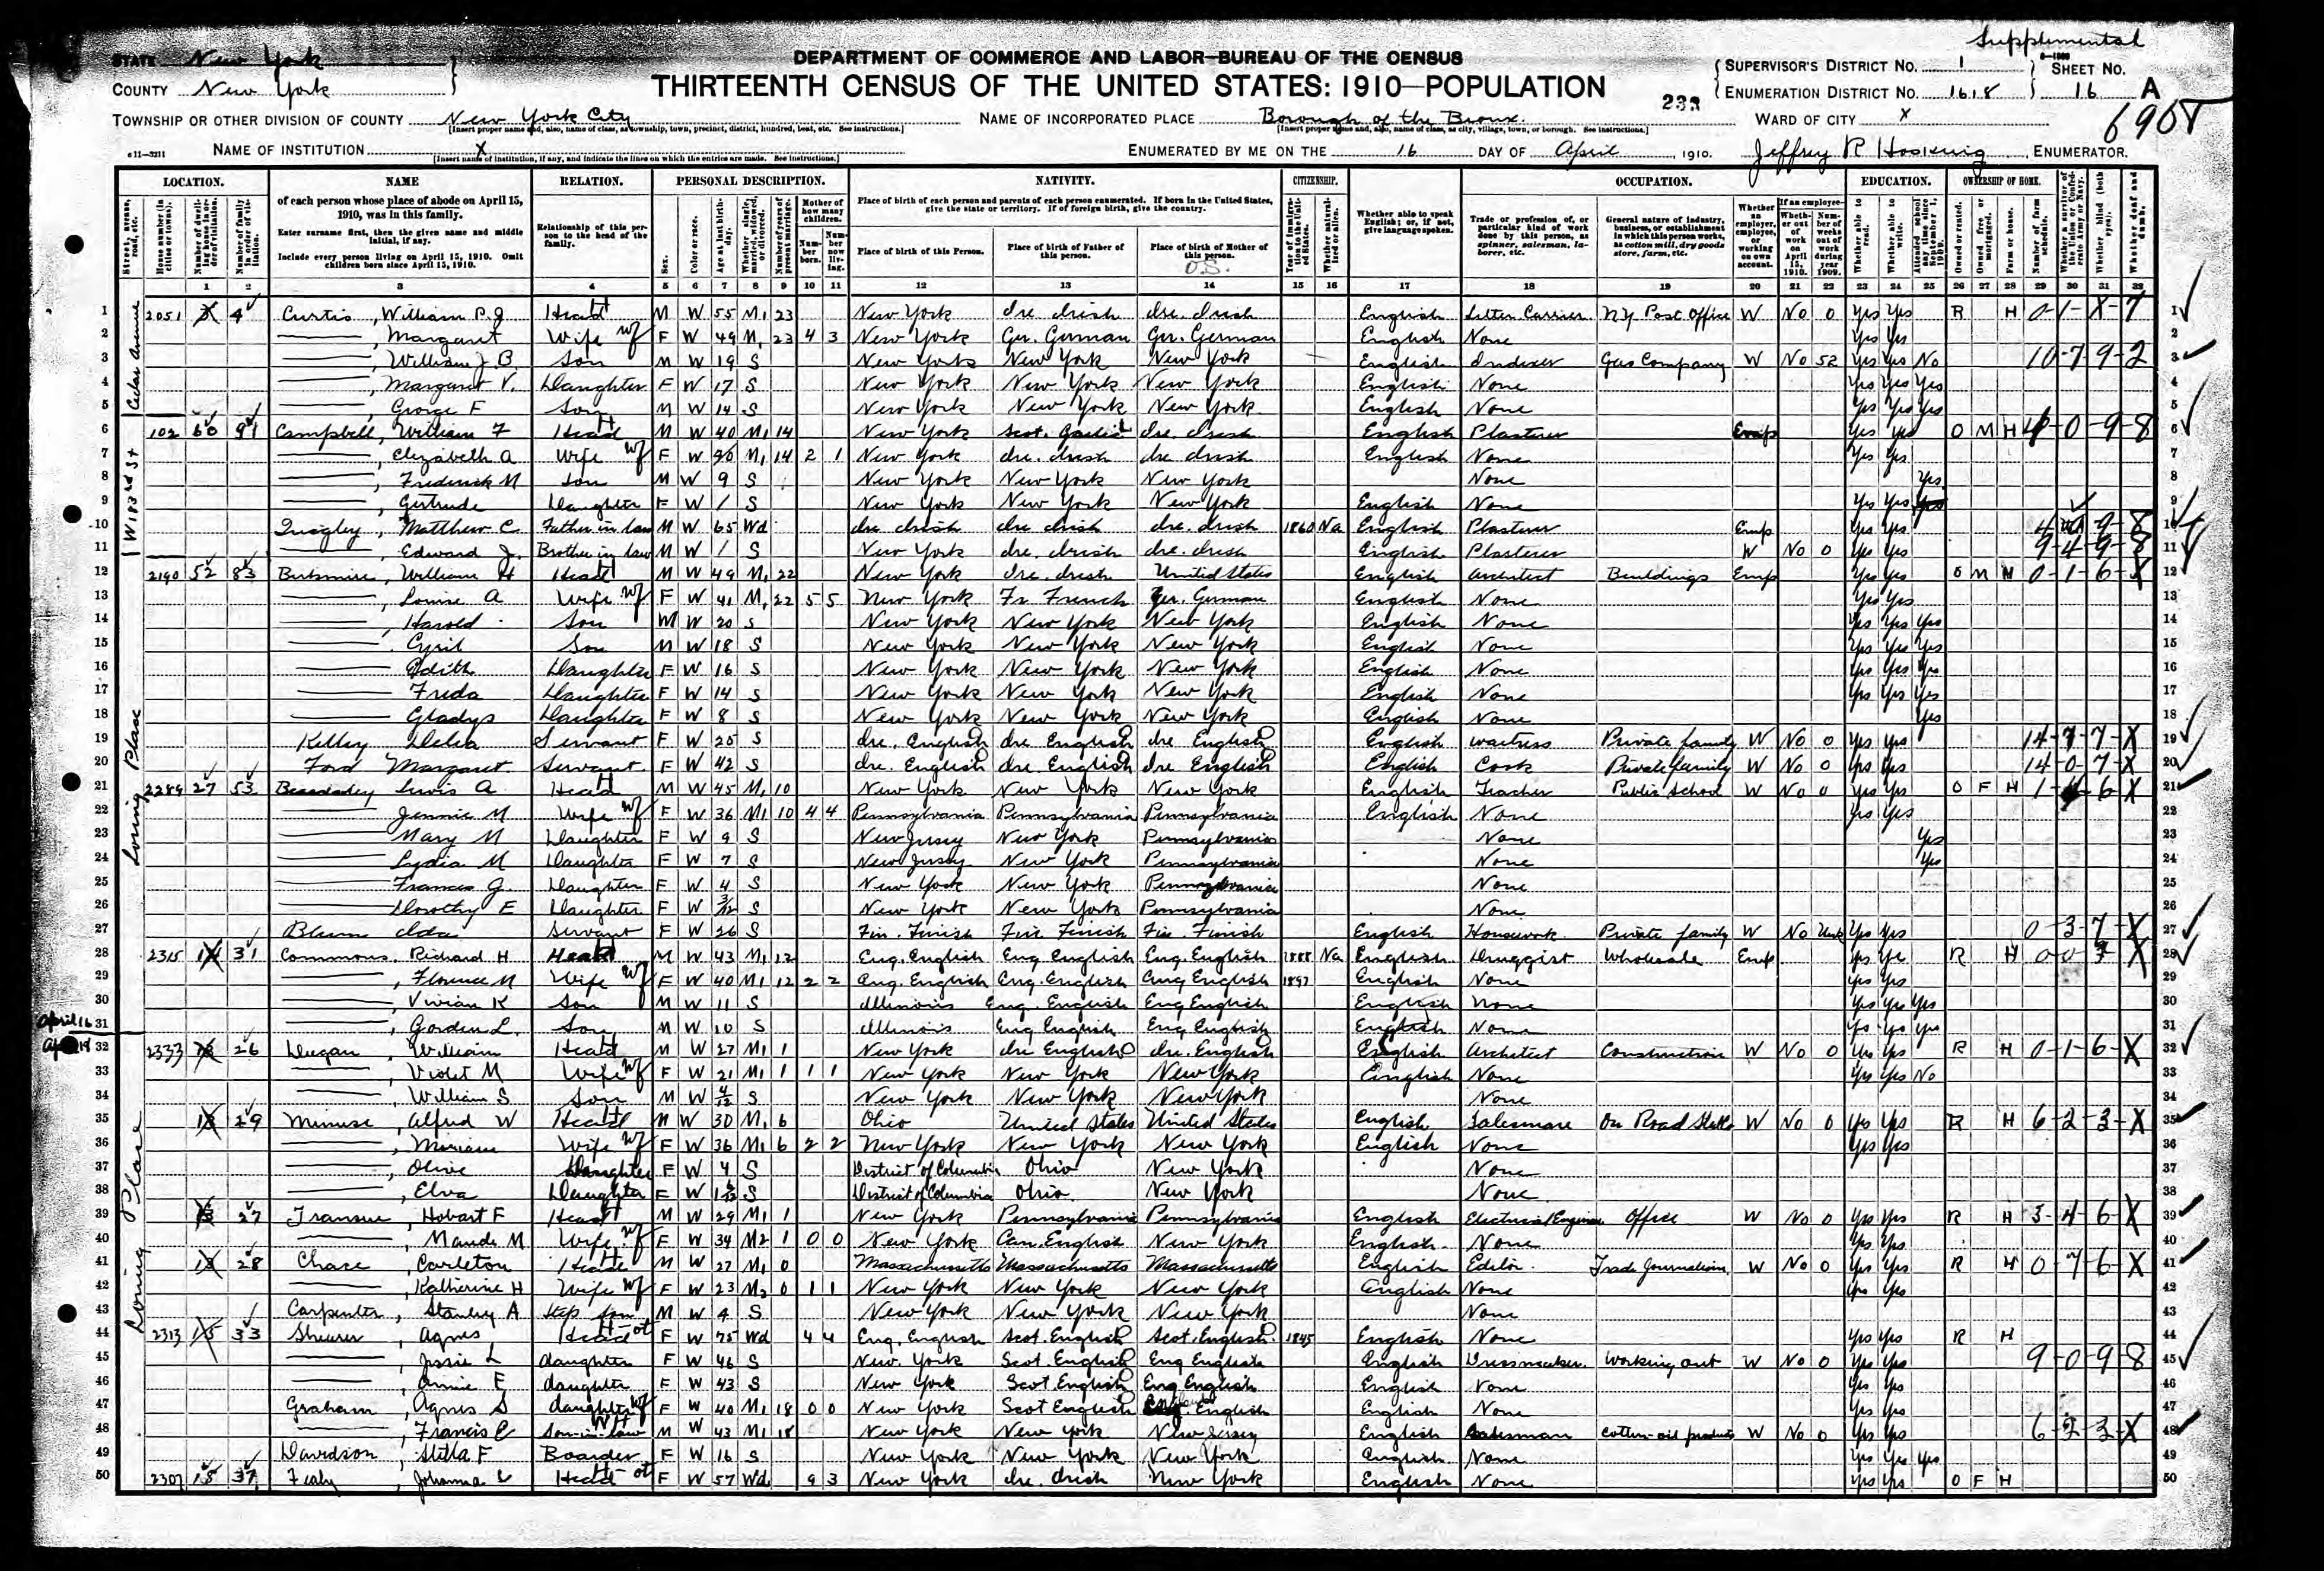 Supplemental
STATE New York
DEPARTMENT OF COMMERCE AND LABOR—BUREAU OF THE CENSUS
SUPERVISOR'S DISTRICT No. 1 SHEET No.
COUNTY New York
THIRTEENTH CENSUS OF THE UNITED STATES: 1910—POPULATION
ENUMERATION DISTRICT No. 1618 16 A
TOWNSHIP OR OTHER DIVISION OF COUNTY New York City NAME OF INCORPORATED PLACE Borough of the Bronx. WARD OF CITY X
[Insert proper name and, also, name of class, as township, town, precinct, district, hundred, beat, etc. See instructions.] [Insert proper name and, also, name of class, as city, village, town, or borough. See instructions.]
NAME OF INSTITUTION X ENUMERATED BY ME ON THE 16 DAY OF April, 1910. Jeffrey R ENUMERATOR.
[Insert name of institution, if any, and indicate the lines on which the entries are made. See instructions.]
LOCATION. NAME RELATION. PERSONAL DESCRIPTION. NATIVITY. CITIZENSHIP. OCCUPATION. EDUCATION. OWNERSHIP OF HOME.
of each person whose place of abode on April 15, 1910, was in this family.
Enter surname first, then the given name and middle initial, if any.
Include every person living on April 15, 1910. Omit children born since April 15, 1910.
Relationship of this person to the head of the family.
Place of birth of each person and parents of each person enumerated. If born in the United States, give the state or territory. If of foreign birth, give the country.
Place of birth of this Person. Place of birth of Father of this person. Place of birth of Mother of this person.
Whether able to speak English; or, if not, give language spoken.
Trade or profession of, or particular kind of work done by this person, as spinner, salesman, laborer, etc.
General nature of industry, business, or establishment in which this person works, as cotton mill, dry goods store, farm, etc.
1 2051 4 Curtis, William P.J Head M W 55 M1 23 New York Ire. Irish Ire. Irish English Letter Carrier NY Post Office W No 0 Yes Yes R H
2 Margaret Wife F W 49 M1 23 4 3 New York Ger. German Ger. German English None Yes Yes
3 William J B. Son M W 19 S New York New York New York English Indexer Gas Company W No 52 Yes Yes No
4 Margaret V. Daughter F W 17 S New York New York New York English None Yes Yes Yes
5 George F Son M W 14 S New York New York New York English None Yes Yes Yes
6 102 60 91 Campbell, William F Head M W 40 M1 14 New York Scot. Gaelic Ire. Irish English Plasterer Emp Yes Yes O M H
7 Elizabeth A Wife F W M1 14 2 1 New York Ire. Irish Ire Irish English None Yes Yes
8 Frederick M Son M W 9 S New York New York New York None Yes
9 Gertrude Daughter F W 1 S New York New York New York English None Yes Yes
10 Quigley, Matthew C Father in law M W 65 Wd Ire Irish Ire Irish Ire. Irish 1860 Na English Plasterer Emp Yes Yes
11 Edward J. Brother in law M W 1 S New York Ire. Irish Ire. Irish English Plasterer W No 0 Yes Yes
12 2190 52 83 Birkmire, William H Head M W 49 M1 22 New York Ire. Irish United States English Architect Buildings Emp Yes Yes O M H 0-1-6-X
13 Louise A Wife F W 41 M1 22 5 5 New York Fr French Ger. German English None Yes Yes
14 Harold Son M W 20 S New York New York New York English None Yes Yes Yes
15 Cyril Son M W 18 S New York New York New York English None Yes Yes Yes
16 Edith Daughter F W 16 S New York New York New York English None Yes Yes Yes
17 Freda Daughter F W 14 S New York New York New York English None Yes Yes Yes
18 Gladys Daughter F W 8 S New York New York New York English None Yes
19 Kelley Delia Servant F W 25 S Ire. English Ire English Ire English English Waitress Private family W No 0 Yes Yes
20 Ford Margaret Servant F W 42 S Ire. English Ire. English Ire English English Cook Private family W No 0 Yes Yes 14-0-7-X
21 2289 27 53 Lewis A Head M W 45 M1 10 New York New York New York English Teacher Public School W No 0 Yes Yes O F H
22 Jennie M Wife F W 36 M1 10 4 4 Pennsylvania Pennsylvania Pennsylvania English None Yes Yes
23 Mary M Daughter F W 9 S New Jersey New York Pennsylvania None Yes
24 Lydia M Daughter F W 7 S New Jersey New York Pennsylvania None Yes
25 Frances G. Daughter F W 4 S New York New York Pennsylvania None
26 Dorothy E Daughter F W 3/12 S New York New York Pennsylvania None
27 Blum Ida Servant F W 26 S Fin. Finish Fin Finish Fin. Finish English Housework Private family W No Unk Yes Yes 0-3-7-X
28 2315 31 Commons, Richard H Head M W 43 M1 12 Eng. English Eng English Eng. English 1888 Na English Druggist Wholesale Emp Yes Yes R H
29 Florence M Wife F W 40 M1 12 2 2 Eng. English Eng. English Eng English 1897 English None Yes Yes
30 Vivian K Son M W 11 S Illinois Eng. English Eng English English None Yes Yes Yes
April 16 31 Gordon L. Son M W 10 S Illinois Eng English Eng English English None Yes Yes Yes
32 2333 26 Dugan, William Head M W 27 M1 1 New York Ire English Ire. English English Architect Construction W No 0 Yes Yes R H 0-1-6-X
33 Violet M Wife F W 21 M1 1 1 1 New York New York New York English None Yes Yes No
34 William S Son M W S New York New York New York None
35 29 Minuse, Alfred W Head M W 30 M1 6 Ohio United States United States English Salesman On Road W No 0 Yes Yes R H 6-2-3-X
36 Miriam Wife F W 36 M1 6 2 2 New York New York New York English None Yes Yes
37 Olive Daughter F W 4 S District of Columbia Ohio New York None
38 Elva Daughter F W S District of Columbia Ohio New York None
39 27 Transue, Hobart F Head M W 29 M1 1 New York Pennsylvania Pennsylvania English Electrical Engineer Office W No 0 Yes Yes R H 3-4-6-X
40 Maude M Wife F W 34 M2 1 0 0 New York Can. English New York English None Yes Yes
41 28 Chase, Carleton Head M W 27 M1 0 Massachusetts Massachusetts Massachusetts English Editor Trade Journalism W No 0 Yes Yes R H 0-7-6-X
42 Katherine H Wife F W 23 M2 0 1 1 New York New York New York English None Yes Yes
43 Carpenter, Stanley A Step son M W 4 S New York New York New York None
44 2313 33 Sheurer, Agnes Head F W 75 Wd 4 4 Eng. English Scot. English Scot. English 1845 English None Yes Yes R H
45 Jessie L daughter F W 46 S New York Scot. English Eng English English Dressmaker Working out W No 0 Yes Yes 9-0-9-8
46 Annie E daughter F W 43 S New York Scot. English Eng English English None Yes Yes
47 Graham, Agnes S daughter F W 40 M1 18 0 0 New York Scot English English English None Yes Yes
48 Francis E Son-in-law M W 43 M1 18 New York New York New Jersey English Salesman Cotton-oil products W No 0 Yes Yes 6-2-3-X
49 Davidson, Stella F Boarder F W 16 S New York New York New York English None Yes Yes Yes
50 2307 18 37 Fealy, Johanna Head F W 57 Wd 9 3 New York Ire. Irish New York English None Yes Yes O F H
Cedar Avenue
W 183rd St
Loring Place
Loring Place